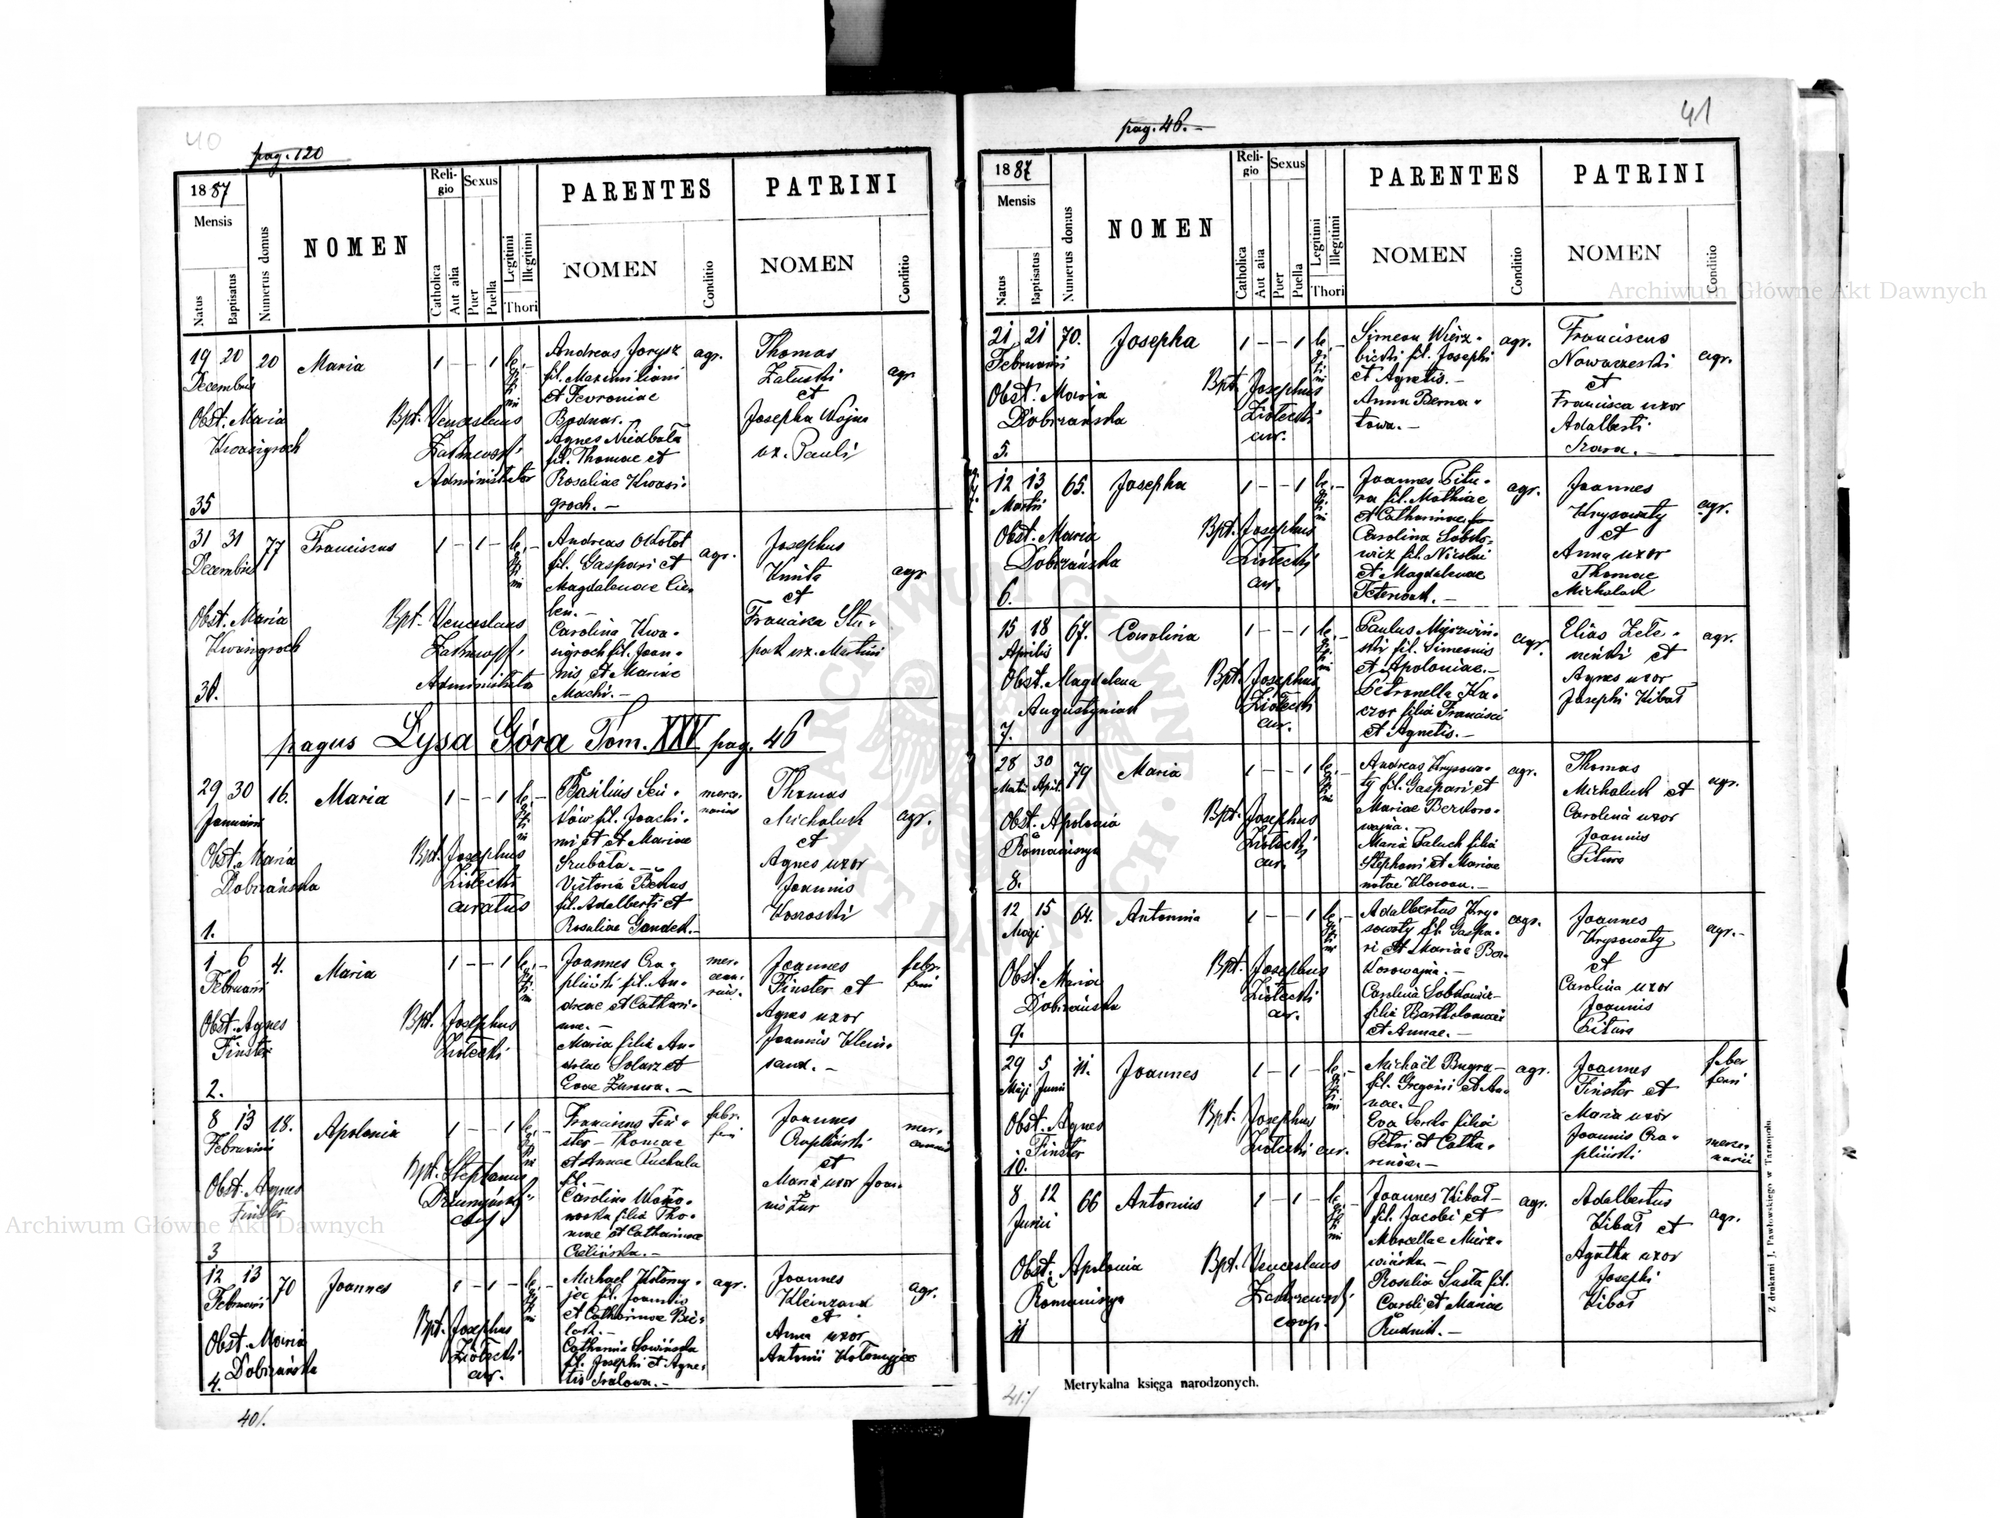 40
pag. 120
1887
Mensis
Natus
Baptisatus
Numerus domus
NOMEN
Reli-
gio
Catholica
Aut alia
Sexus
Puer
Puella
Legitimi
Illegitimi
Thori
PARENTES
NOMEN
Conditio
PATRINI
NOMEN
Conditio
19 20 20 Maria 1 – – 1
Decembris
Obst. Maria
Kwasigroch
Bpt. Venceslaus
Administrator
Andreas Jorysz
fil. Maximiliani
et Fevroniae
Bodnar.
Agnes Niedbała
fil. Thomae et
Rosaliae Kwasi-
groch. –
agr.
Thomas
Załuski
et
Josepha Wojna
ux. Pauli
agr.
35
31 31 77 Franciscus 1 – 1 –
Decembris
Obst. Maria
Kwasigroch
Bpt. Venceslaus
Administrator
Andreas
fil. Gaspari et
Magdalenae Cie-
Carolina Kwa-
sigroch fil. Joan-
nis et Mariae
Machi. –
agr.
Josephus
Kmita
et
ux. Martini
agr.
36.
pagus Lysa Góra Tom. XXV pag. 46
29 30 16. Maria 1 – – 1
Januarii
Obst. Maria
Dobrzańska
Bpt. Josephus
Ziołecki
curatus
Basilius Sci-
fil. Joachi-
mi et Mariae
Victoria
fil. Adalberti et
Rosaliae Gandek. –
merce-
narius
Thomas
Michaluch
et
Agnes uxor
Joannis
agr.
1.
1 6 4. Maria 1 – – 1
Februarii
Obst. Agnes
Finster
Bpt. Josephus
Ziołecki
Joannes Cza-
pliński fil. An-
dreae et Cathari-
nae. –
Maria filia An-
dreae Solarz et
Evae Zurowa. –
Joannes
Finster et
Agnes uxor
Joannis Klein-
sand. –
2.
8 13 18. Apolonia 1 – – 1
Februarii
Obst. Agnes
Finster
Bpt. Stephanus
Franciscus Fin-
ster – Thomae
et Annae Puchala
fil. –
Carolina
filia Tho-
mae et Catharinae
Joannes
Czapliński
et
Maria uxor Joan-
nis Żur
3
12 13 70 Joannes 1 – 1 –
Februarii
Obst. Maria
Dobrzańska
Bpt. Josephus
Ziołecki
cur.
Michael Kołomy-
jec fil. Joannis
et Catharinae Bie-
Catharina Sowińska
fil. Josephi et Agne-
tis
agr.
Joannes
Kleinzand
et
Anna uxor
Antonii Kołomyjec
agr.
4.
40/.
41
pag. 46.
1887
Mensis
Natus
Baptisatus
Numerus domus
NOMEN
Reli-
gio
Catholica
Aut alia
Sexus
Puer
Puella
Legitimi
Illegitimi
Thori
PARENTES
NOMEN
Conditio
PATRINI
NOMEN
Conditio
21 21 70. Josepha 1 – – 1
Februarii
Obst. Maria
Dobrzańska
Bpt. Josephus
Ziołecki
cur.
Simeon Wierz-
bicki fil. Josephi
et Agnetis. –
Anna Berna-
towa. –
agr.
Franciscus
et
Francisca uxor
Adalberti
agr.
5.
12 13 65. Josepha 1 – – 1
Martii
Obst. Maria
Dobrzańska
Bpt. Josephus
Ziołecki
cur.
Joannes Pitu-
ra fil. Mathiae
et Catharinae
Carolina Sobko-
wicz fil. Nicolai
et Magdalenae
agr.
Joannes
Krysowaty
et
Anna uxor
Thomae
Michaluch
agr.
6.
15 18 67. Carolina 1 – – 1
Aprilis
Obst. Magdalena
Augustyniak
Bpt. Josephus
Ziołecki
cur.
Paulus Myszwiń-
ski fil. Simeonis
et Apoloniae. –
Petronella Ka-
czor filia Francisci
et Agnetis. –
agr.
Elias Zele-
niński et
Agnes uxor
Josephi Kibał
agr.
7.
28 30 79 Maria 1 – – 1
Obst. Apolonia
Bpt. Josephus
Ziołecki
cur.
Andreas Krysowa-
ty fil. Gaspari et
Mariae Berkoro-
wajna. –
Maria Paluch filia
Stephani et Mariae
natae
agr.
Thomas
Michaluch et
Carolina uxor
Joannis
Pitura
agr.
8.
12 15 64. Antonina 1 – – 1
Maji
Obst. Maria
Dobrzańska
Bpt. Josephus
Ziołecki
cur.
Adalbertus Kry-
sowaty fil. Gaspa-
ri et Mariae Ber-
korowajna. –
Carolina Sobkowicz –
filia Bartholomaei
et Annae. –
agr.
Joannes
Krysowaty
et
Carolina uxor
Joannis
Pitura
agr. –
9.
29 5 11. Joannes 1 – 1
Maji Junii
Obst. Agnes
Finster
Bpt. Josephus
Ziołecki cur.
Michaël Bugra –
fil. Gregorii et An-
nae. –
Eva Serko filia
Petri et Catha-
rinae. –
agr.
Joannes
Finster et
Maria uxor
Joannis Cza-
pliński
merce-
narii
10.
8 12 66 Antonius 1 – 1 –
Junii
Obst. Apolonia
Bpt. Venceslaus
coop.
Joannes Kibał –
fil. Jacobi et
Marcellae Miesz-
wińska –
Rosalia Susła fil.
Caroli et Mariae
Rudnik. –
agr.
Adalbertus
Kibał et
Agatha uxor
Josephi
Kibał
agr.
11
41./
Metrykalna księga narodzonych.
Z drukarni J. Pawłowskiego w Tarnopolu
Archiwum Główne Akt Dawnych
Archiwum Główne Akt Dawnych
ARCHIWUM GŁÓWNE AKT DAWNYCH